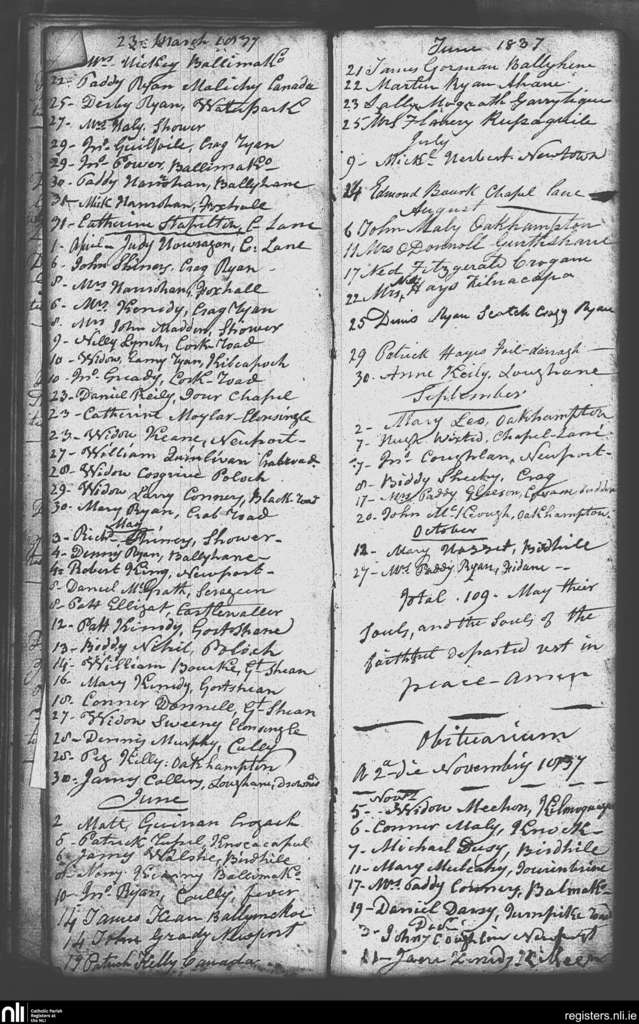 23 March 1837
Mrs Hickey Ballimako
22 - Paddy Ryan Malichy Canada
25 - Derby Ryan, Waterpark
27 - Mrs Haly, Shower
29 - Jno. Guilfoile, Crag Ryan
29 - Jno. Power, Ballimako
30 - Paddy Hanrahan, Ballyhane
31 - Mick Hanrahan, Foxhall
31 - Catherine Stapilton, C. Lane
1 - April - Judy Houragan, C: Lane
6 - John Shiney, Crag Ryan -
8 - Mrs Hanrahan, Foxhall
6 - Mrs Kenedy, Crag Ryan
8 - Mrs John Madden, Shower
9 - Nelly Lynch, Cork Road
10 - Widow Ryan,
10 - Jno. Gready, Cork Road
23 - Daniel Reily, Your Chapel
23 - Catherine Moylar - Clonsingle
23 - Widow Keane, Newport -
27 - William Quinlivan Crabroad
28 - Widow Cosgrive Poloch
29 - Widow Lavy Connery, Black Road
30 - Mary Ryan, Crab Road
May
3 - Richd. Shiney, Shower -
4 - Denny Ryan, Ballyhane -
4 - Robert King, Newport -
8 - Daniel McGrath,
8 - Patt Castlewaller
12 - Patt Kinedy, Gortshane
13 - Biddy Nihil, Poloch
14 - William Bourke, Gt. Shean
16 - Mary Kenedy, Gortshean
18 - Conner Donnell, Gt. Shean
27 - Widow Sweeny Clonsingle
28 - Dennis Murphy, Cully
28 - Peg Kelly: Oakhampton
30 - Jamy Collins, Loughane, Drowned
June
2 Matt Guinan
5 - Patrick
6 - Jamy Walshe, Birdhill
8 - Nany Ballimako
10 - Jno. Ryan, Coully, fever
14 James Kean
14 John Grady Newport
19 Patrick Kelly Canada
June 1837
21 James Gorman Ballyhene
22 Martin Ryan Ahane
23 Sally Magrath Garrytigue
25 Mrs Flahery
July
9 - Mickl. Herbert - Newtown
24 Edmond Bourk Chapel Lane
August
6 John Maly Oakhampton
11 Mrs ODonnell Gurtishane
17 Ned Fitzgerald Crogane
22 Mrs Hays Kilnacapa
25 Denis Ryan Scotch Cragg Ryan
29 Patrick Hayes Foil-darragh
30 - Anne Keily, Loughane
September
2 - Mary Leo, Oakhampton
7 - Hugh Chapel-Lane
7 - Jno. Coughlan, Newport -
8 - Biddy Sheehy, Crag
17 - Mrs Paddy Gleeson,
20 - John McKeough, Oakhampton
October
12 - Mary Birdhill
27 - Mrs Paddy Ryan,
Total - 109 - May thier
Souls, and the Souls of the
faithful departed rest in
peace - Amen
Obituarium
A 2a die Novembris 1837
Novr.
5 - Widow Meehon,
6 - Conner Maly, Knock -
7 - Michael Birdhill
11 - Mary Mulcahy,
17 - Mrs Paddy Balmako
19 - Daniel Darcy, Turnpike Road
Decr.
3 - John Coughlin Newport
11 - Jane
nli Catholic Parish Registers at the NLI
registers.nli.ie